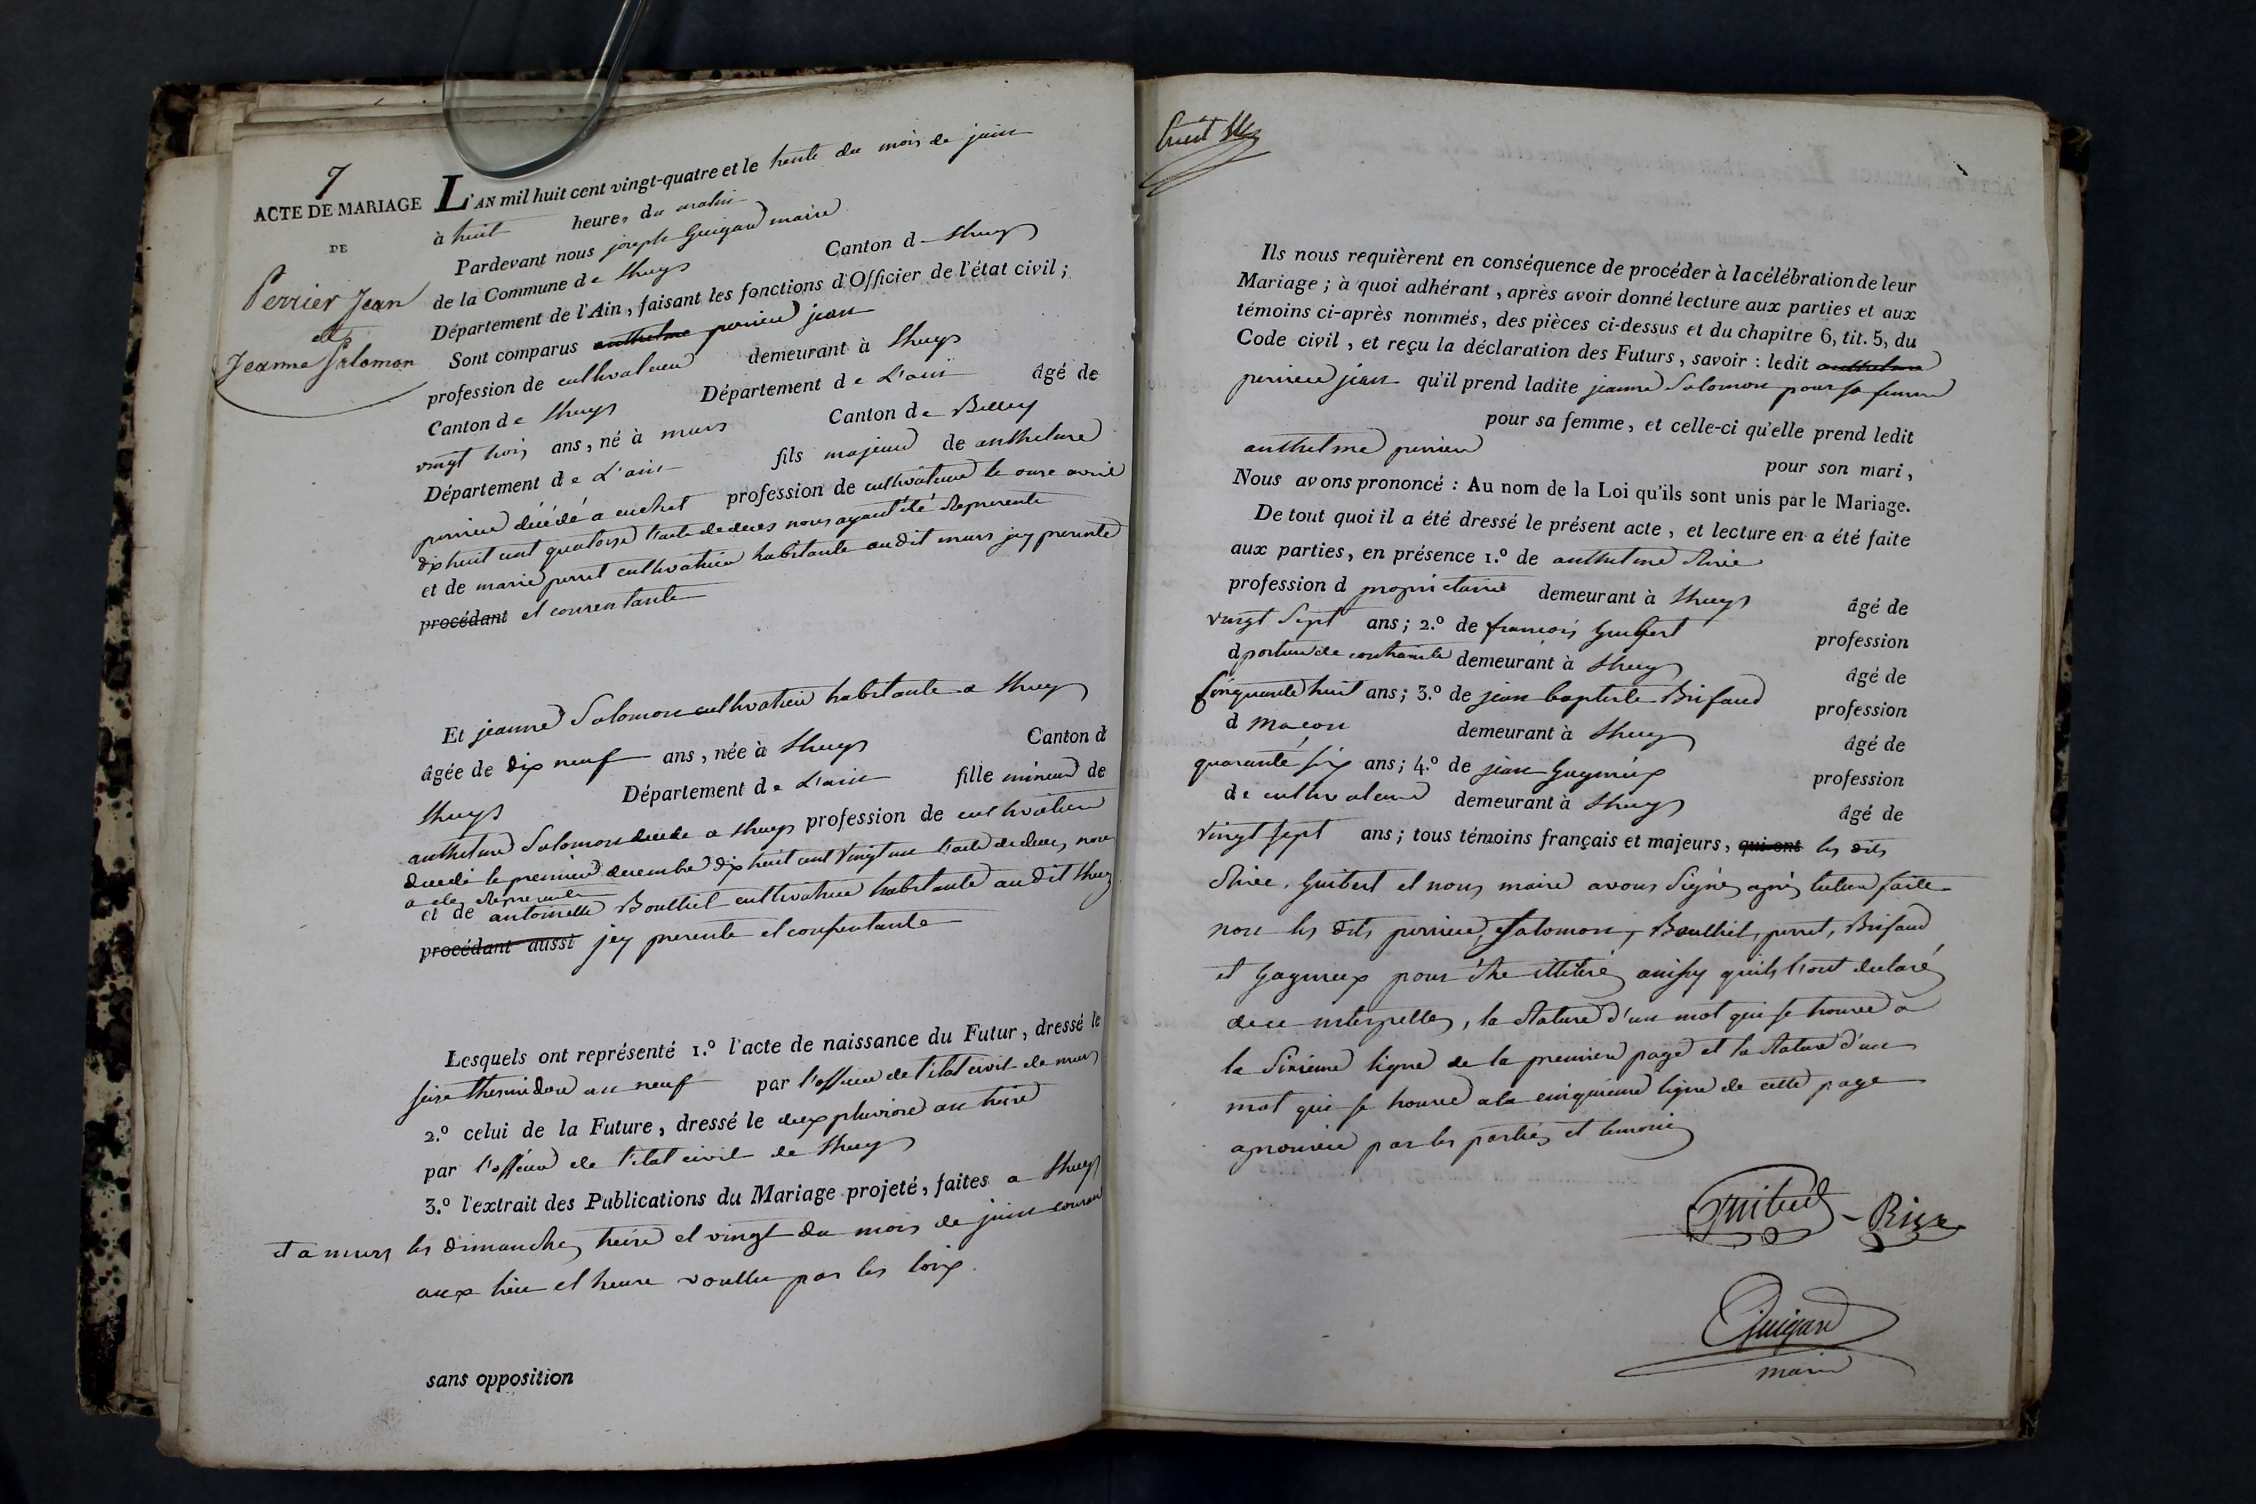 7
ACTE DE MARIAGE
DE
Perrier Jean
et
Jeanne Salomon
L'AN mil huit cent vingt-quatre et le trente du mois de juin
à huit heures du matin
Pardevant nous joseph Guigard maire
de la Commune de Lhuys Canton d Lhuys
Département de l'Ain, faisant les fonctions d'Officier de l'état civil;
Sont comparus anthelme perrier jean
profession de cultivateur demeurant à Lhuys
Canton de Lhuys Département de L'ain âgé de
vingt trois ans, né à murs Canton de Belley
Département de L'ain fils majeur de anthelme
perrier décédé a cuchet profession de cultivateur le onze avril
dix huit cent quatorze l'acte de deces nous ayant été Representé
et de marie perret cultivatrice habitante audit murs jcy presente
procédant et consentante
Et jeanne Salomon cultivatrice habitante a Lhuys
âgée de dix neuf ans, née à Lhuys Canton d
Lhuys Département de L'ain fille mineure de
anthelme Salomon decedé a Lhuys profession de cultivateur
decedé le premier decembre dix huit cent vingt un l'acte de deces nous
a été Representé
et de antoinette Bouthiet cultivatrice habitante audit Lhuys
procédant aussi jcy presente et consentante
Lesquels ont représenté 1.º l'acte de naissance du Futur, dressé le
seize thermidor an neuf par l'officier de l'état civil de murs
2.º celui de la Future, dressé le deux pluviose an treize
par l'officier de l'état civil de Lhuys
3.º l'extrait des Publications du Mariage projeté, faites a Lhuys
et a murs les dimanches treize et vingt du mois de juin courant
aux lieu et heure voullu par les loix.
sans opposition
Ils nous requièrent en conséquence de procéder à la célébration de leur
Mariage; à quoi adhérant, après avoir donné lecture aux parties et aux
témoins ci-après nommés, des pièces ci-dessus et du chapitre 6, tit. 5, du
Code civil, et reçu la déclaration des Futurs, savoir: ledit anthelme
perrier jean qu'il prend ladite jeanne Salomon pour sa femme
pour sa femme, et celle-ci qu'elle prend ledit
anthelme perrier pour son mari,
Nous avons prononcé: Au nom de la Loi qu'ils sont unis par le Mariage.
De tout quoi il a été dressé le présent acte, et lecture en a été faite
aux parties, en présence 1.º de anthelme
profession d proprietaire demeurant à Lhuys âgé de
vingt sept ans; 2.º de francois Guibert profession
d porteur de contrainte demeurant à Lhuys âgé de
cinquante huit ans; 3.º de jean baptiste Brifaud profession
d macon demeurant à Lhuys âgé de
quarante six ans; 4.º de jean Gagnieux profession
de cultivateur demeurant à Lhuys âgé de
vingt sept ans; tous témoins français et majeurs, qui ont les dits
Guibert et nous maire avons signés après lecture faite
non les dits perrier, Salomon, Bouthiet, perret, Brifaud
et Gagnieux pour être illitérés ainsy quils l'ont declaré
de ce interpellés, la Rature d'un mot qui se trouve a
la sixieme ligne de la premiere page et la Rature d'un
mot qui se trouve a la cinquieme ligne de cette page
aprouvée par les parties et temoins
Guibert
Guigard
maire